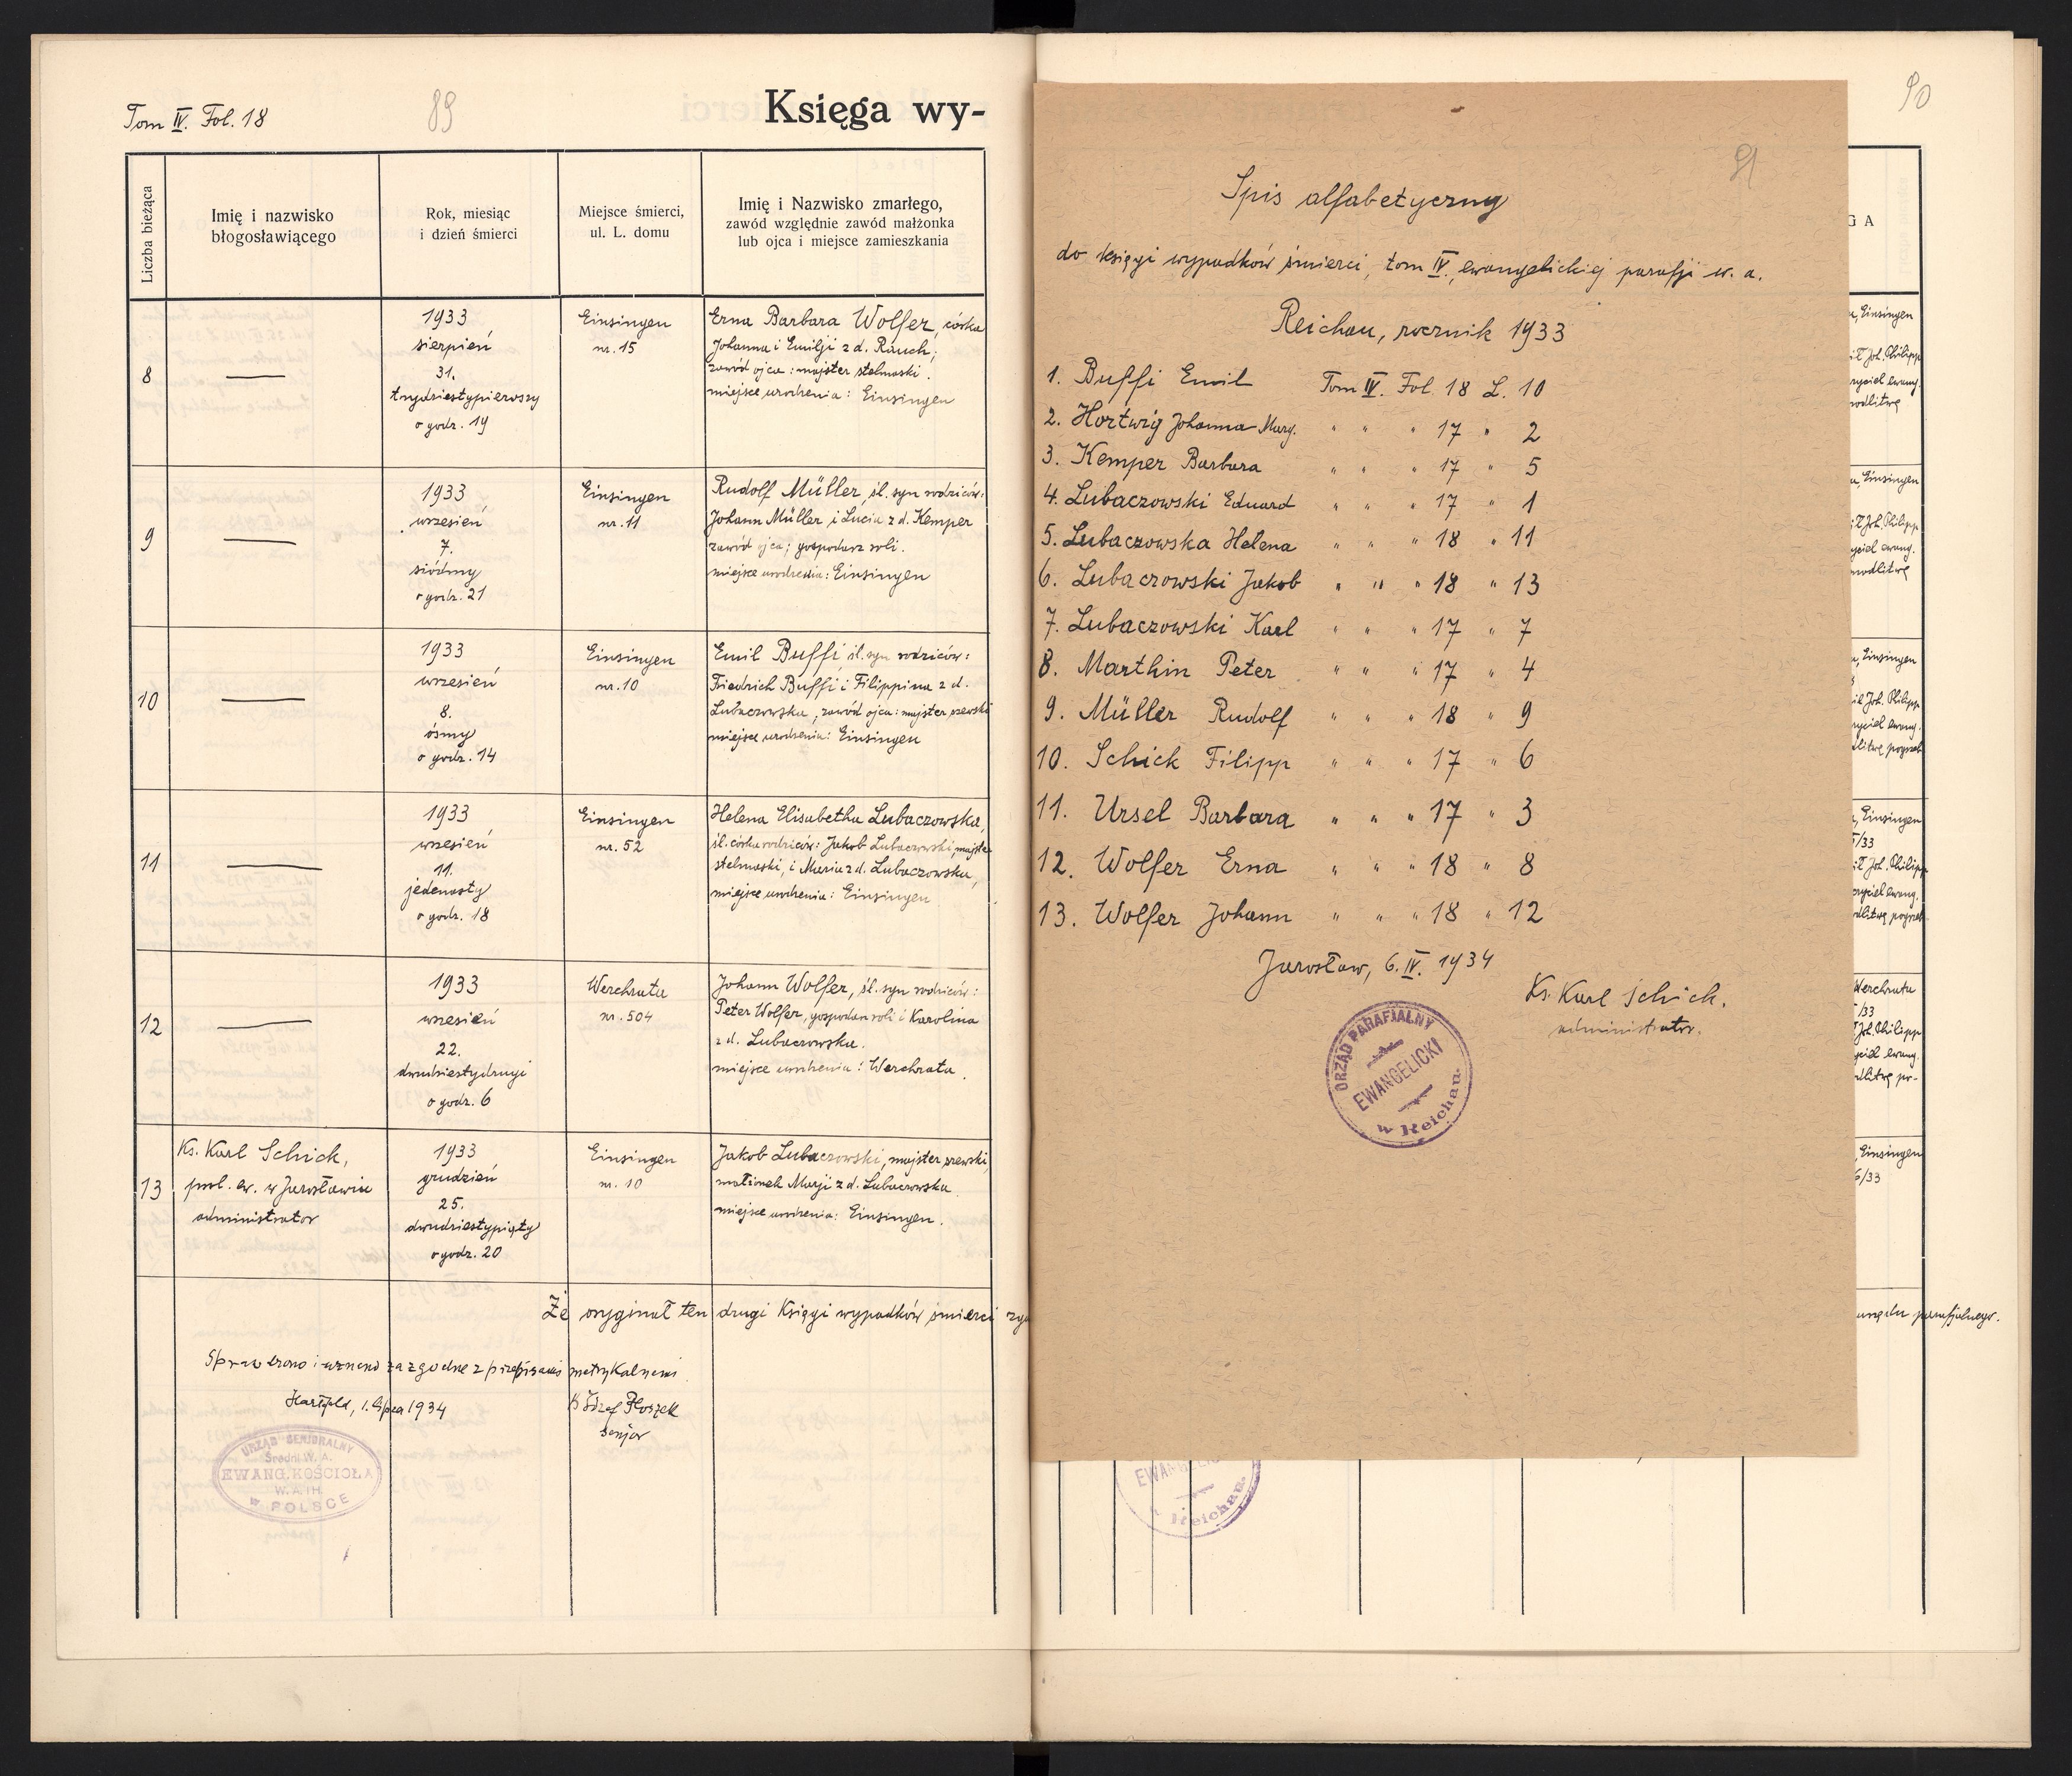 Tom IV. Fol. 18
89
Księga wy-
Liczba bieżąca
Imię i nazwisko
błogosławiącego
Rok, miesiąc
i dzień śmierci
Miejsce śmierci,
ul. L. domu
Imię i Nazwisko zmarłego,
zawód względnie zawód małżonka
lub ojca i miejsce zamieszkania
8
1933
sierpień
31.
trzydziestypierwszy
o godz. 19
Einsingen
nr. 15
Erna Barbara Wolfer, córka
Johanna i Emilji z d. Rauch;
zawód ojca: majster stelmaski.
miejsce urodzenia: Einsingen
9
1933
wrzesień
7.
siódmy
o godz. 21
Einsingen
nr. 11
Rudolf Müller, śl. syn rodziców:
Johann Müller i Lucia z d. Kemper
zawód ojca; gospodarz roli.
miejsce urodzenia: Einsingen
10
1933
wrzesień
8.
ósmy
o godz. 14
Einsingen
nr. 10
Emil Buffi, śl. syn rodziców:
Friedrich Buffi i Filippina z d.
Lubaczowska, zawód ojca: majster szewski
miejsce urodzenia: Einsingen
11
1933
wrzesień
11.
jedenasty
o godz. 18
Einsingen
nr. 52
Helena Elisabetha Lubaczowska,
śl. córka rodziców: Jakob Lubaczowski, majster
stelmaski, i Maria z d. Lubaczowska,
miejsce urodzenia: Einsingen
12
1933
wrzesień
22.
dwudziestydrugi
o godz. 6
Werchrata
nr. 504
Johann Wolfer, śl. syn rodziców:
Peter Wolfer, gospodarz roli i Karolina
z d. Lubaczowska.
miejsce urodzenia: Werchrata.
13
Ks. Karl Schick,
past. ew. w Jarosławiu
administrator
1933
grudzień
25.
dwudziestypiąty
o godz. 20
Einsingen
nr. 10
Jakob Lubaczowski, majster szewski,
małżonek Marji z d. Lubaczowska
miejsce urodzenia: Einsingen.
Że oryginał ten drugi Księgi wypadków śmierci
Sprawdzono i uznano za zgodne z przepisami metrykalnemi.
Hartfeld, 1. lipca 1934
Ks Józef Ploszek
senjor
URZĄD SENJORALNY
Średni W. A.
EWANG. KOŚCIOŁA
W. A. i H.
w POLSCE
90
91
Spis alfabetyczny
do księgi wypadków śmierci, tom IV., ewangelickiej parafji w. a.
Reichau, rocznik 1933
1. Buffi Emil Tom IV. Fol. 18 L. 10
2. Hortwig Johanna Marg. " " " 17 " 2
3. Kemper Barbara " " " 17 " 5
4. Lubaczowski Eduard " " " 17 " 1
5. Lubaczowska Helena " " " 18 " 11
6. Lubaczowski Jakob " " " 18 " 13
7. Lubaczowski Karl " " " 17 " 7
8. Marthin Peter " " " 17 " 4
9. Müller Rudolf " " " 18 " 9
10. Schick Filipp " " " 17 " 6
11. Ursel Barbara " " " 17 " 3
12. Wolfer Erna " " " 18 " 8
13. Wolfer Johann " " " 18 " 12
Jarosław, 6. IV. 1934
Ks. Karl Schick.
administrator.
URZĄD PARAFJALNY
EWANGELICKI
w Reichau.
GA
Einsingen
Joh. Philipp
ewang.
Einsingen
Joh. Philipp
ewang.
Einsingen
Joh. Philipp
ewang.
Einsingen
/33
Joh. Philipp
ewang.
Werchrata
/33
Joh. Philipp
ewang.
Einsingen
/33
parafjalnego.
w Reichau.